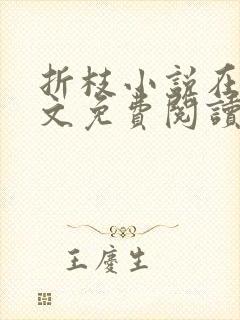 折枝小说在
文免费閱讀
王慶生